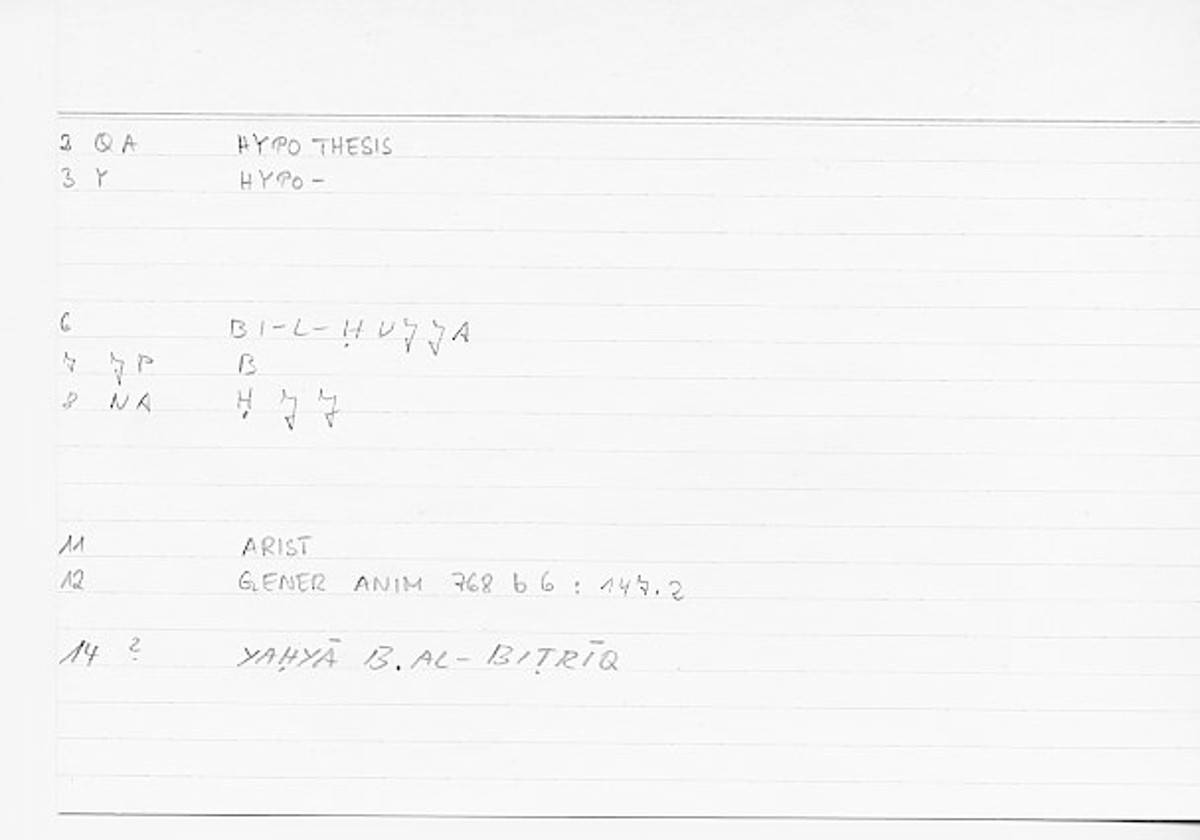 2 QA HYPOTHESIS
3 Y HYPO-
6 BI-L-ḤUJJA
7 JP B
8 NA Ḥ J J
11 ARIST
12 GENER ANIM 768 b 6 : 147.2
14 ? YAḤYĀ B. AL-BIṬRĪQ